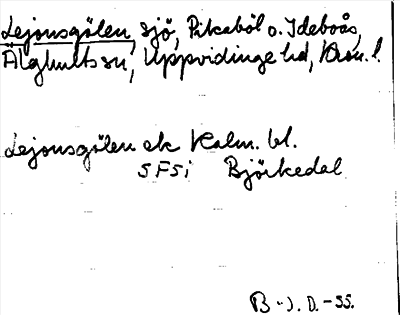 Lejonsgölen, sjö, Pikaböl o. Ideboås,
Älghults sn, Uppvidinge hd, Kron. l.
Lejonsgölen ek Kalm. bl.
SFSi Björkedal
B-J. D.-55.